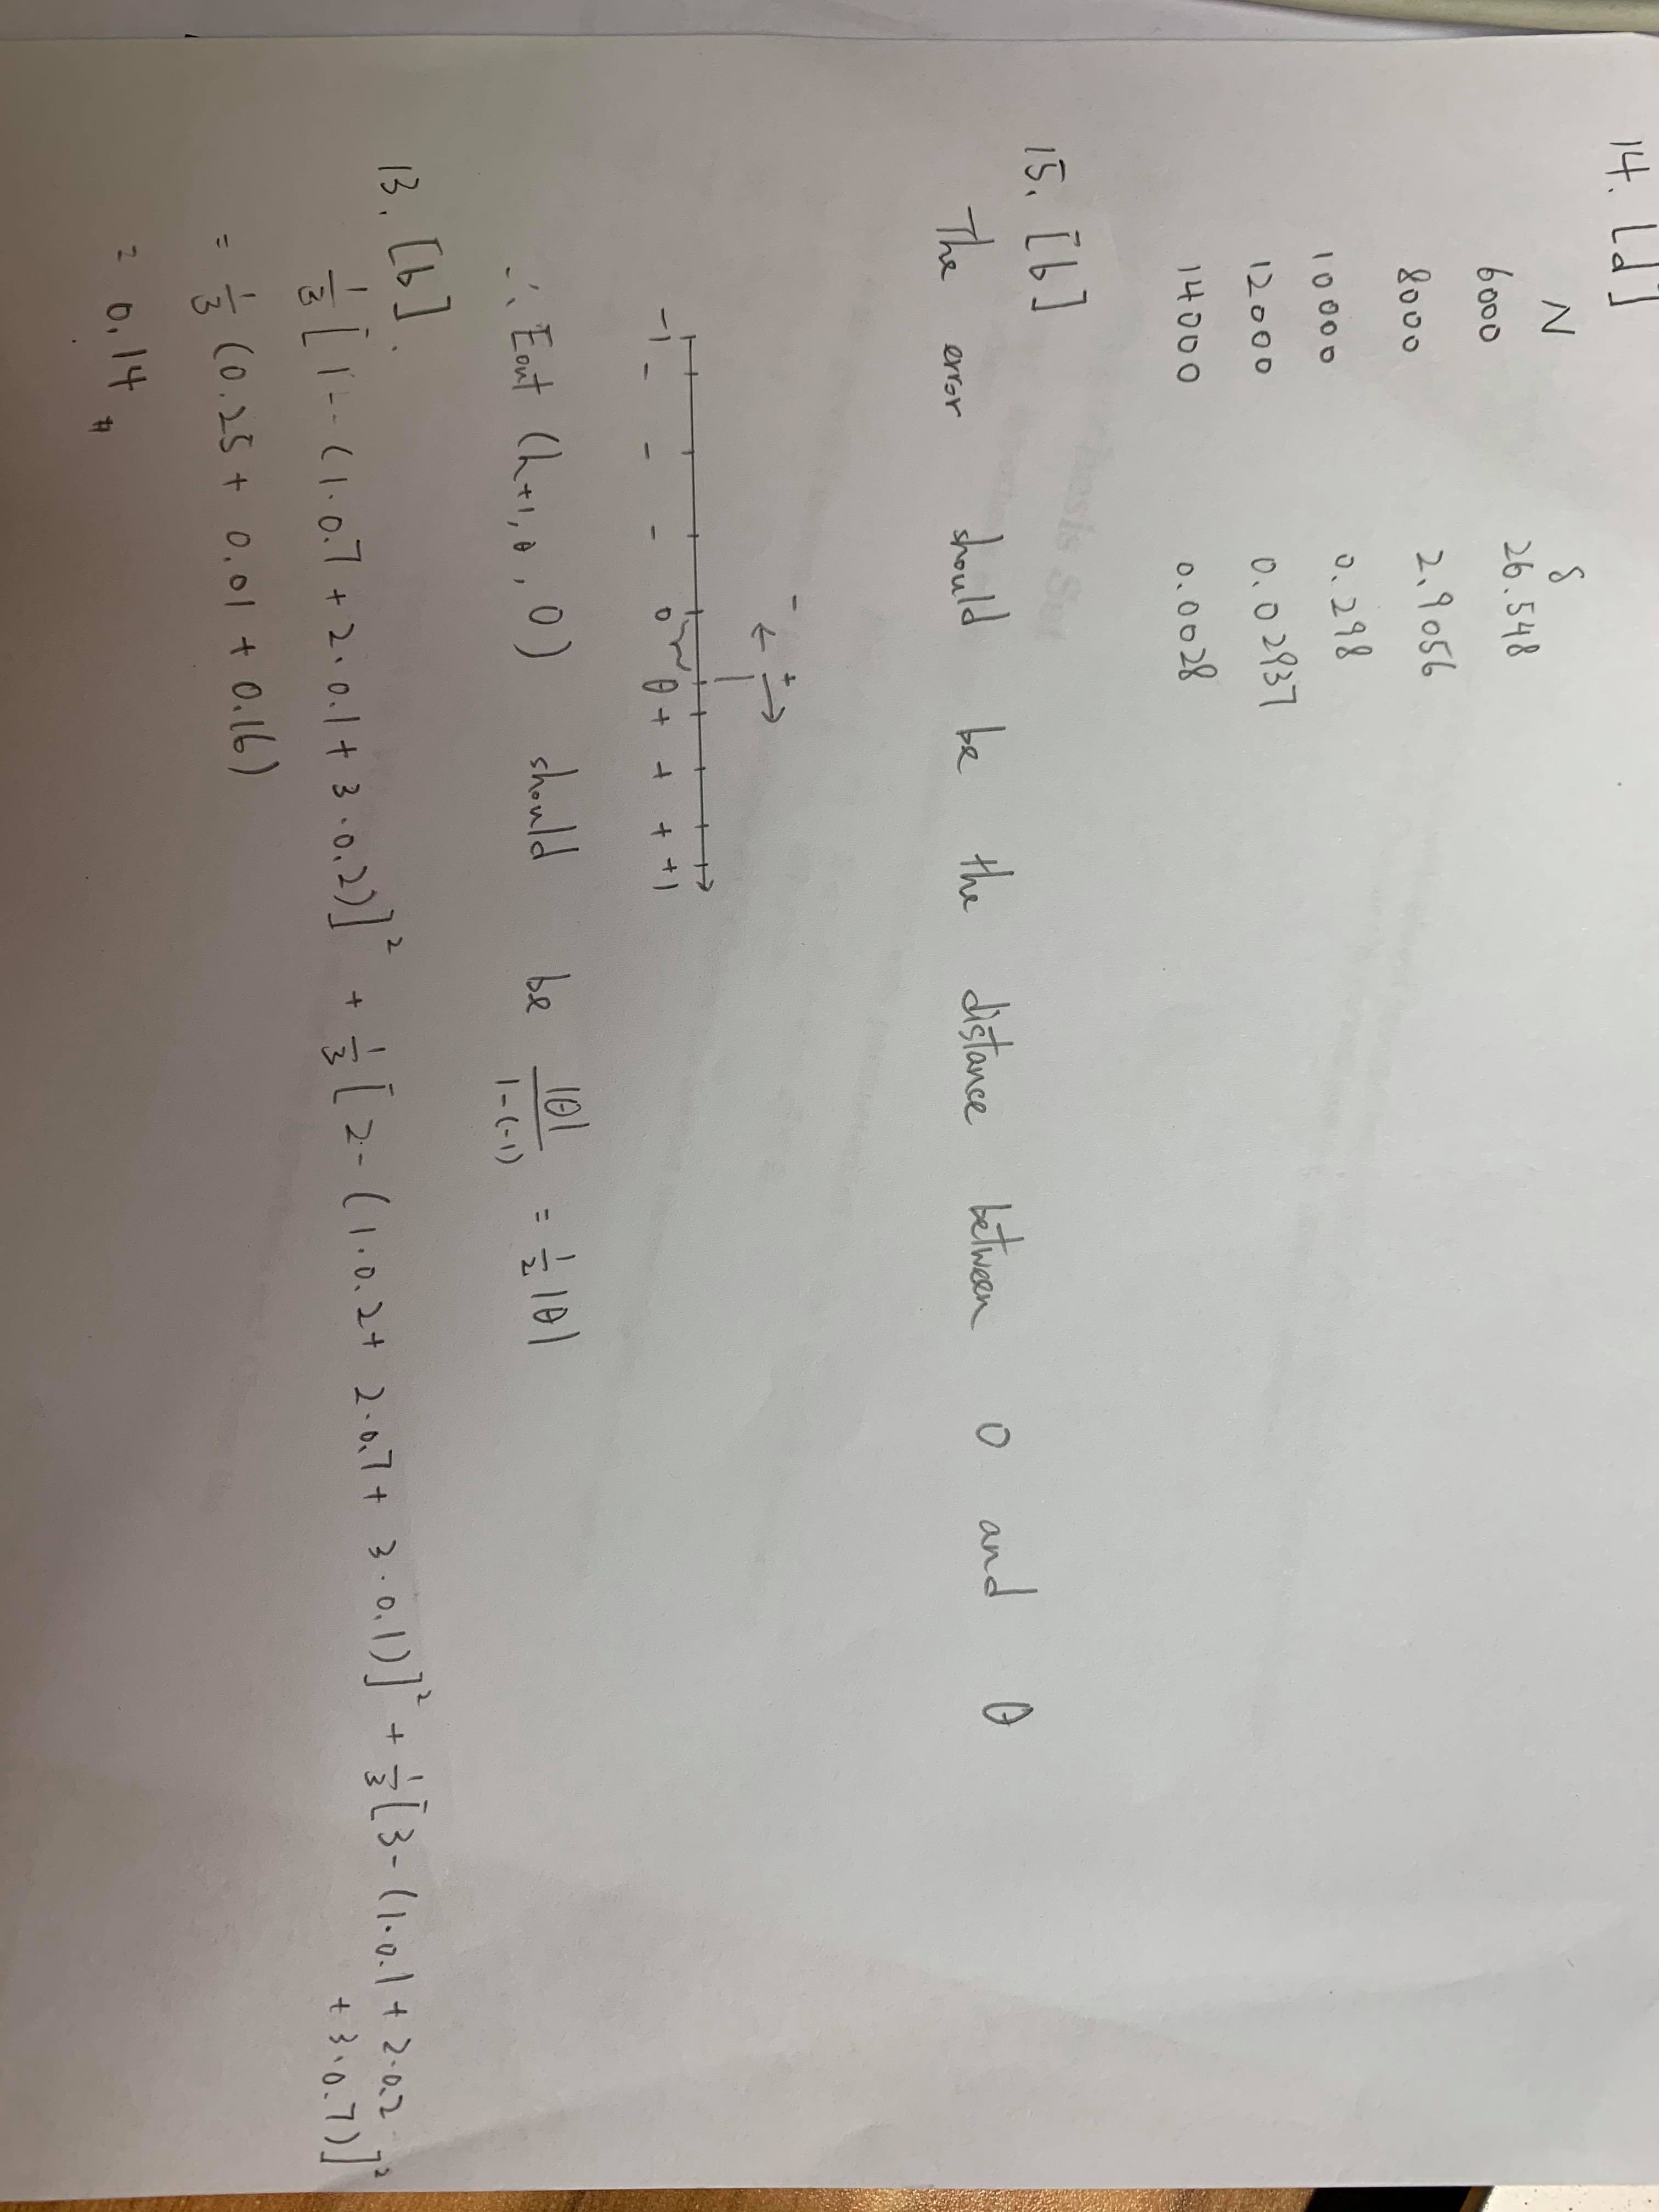 14. [d]
N δ
6000 26.548
8000 2.9056
10000 0.298
12000 0.02937
14000 0.0028
15. [b]
The error should be the distance between 0 and θ
- ← + →
-1 - - - 0 θ + + + +1
∴ Eout (h+1,θ, 0) should be |θ| / 1-(-1) = 1/2 |θ|
13. [b].
1/3 [1 - (1·0.7 + 2·0.1 + 3·0.2)]² + 1/3 [2 - (1·0.2 + 2·0.7 + 3·0.1)]² + 1/3 [3 - (1·0.1 + 2·0.2
+ 3·0.7)]²
= 1/3 (0.25 + 0.01 + 0.16)
= 0.14 #